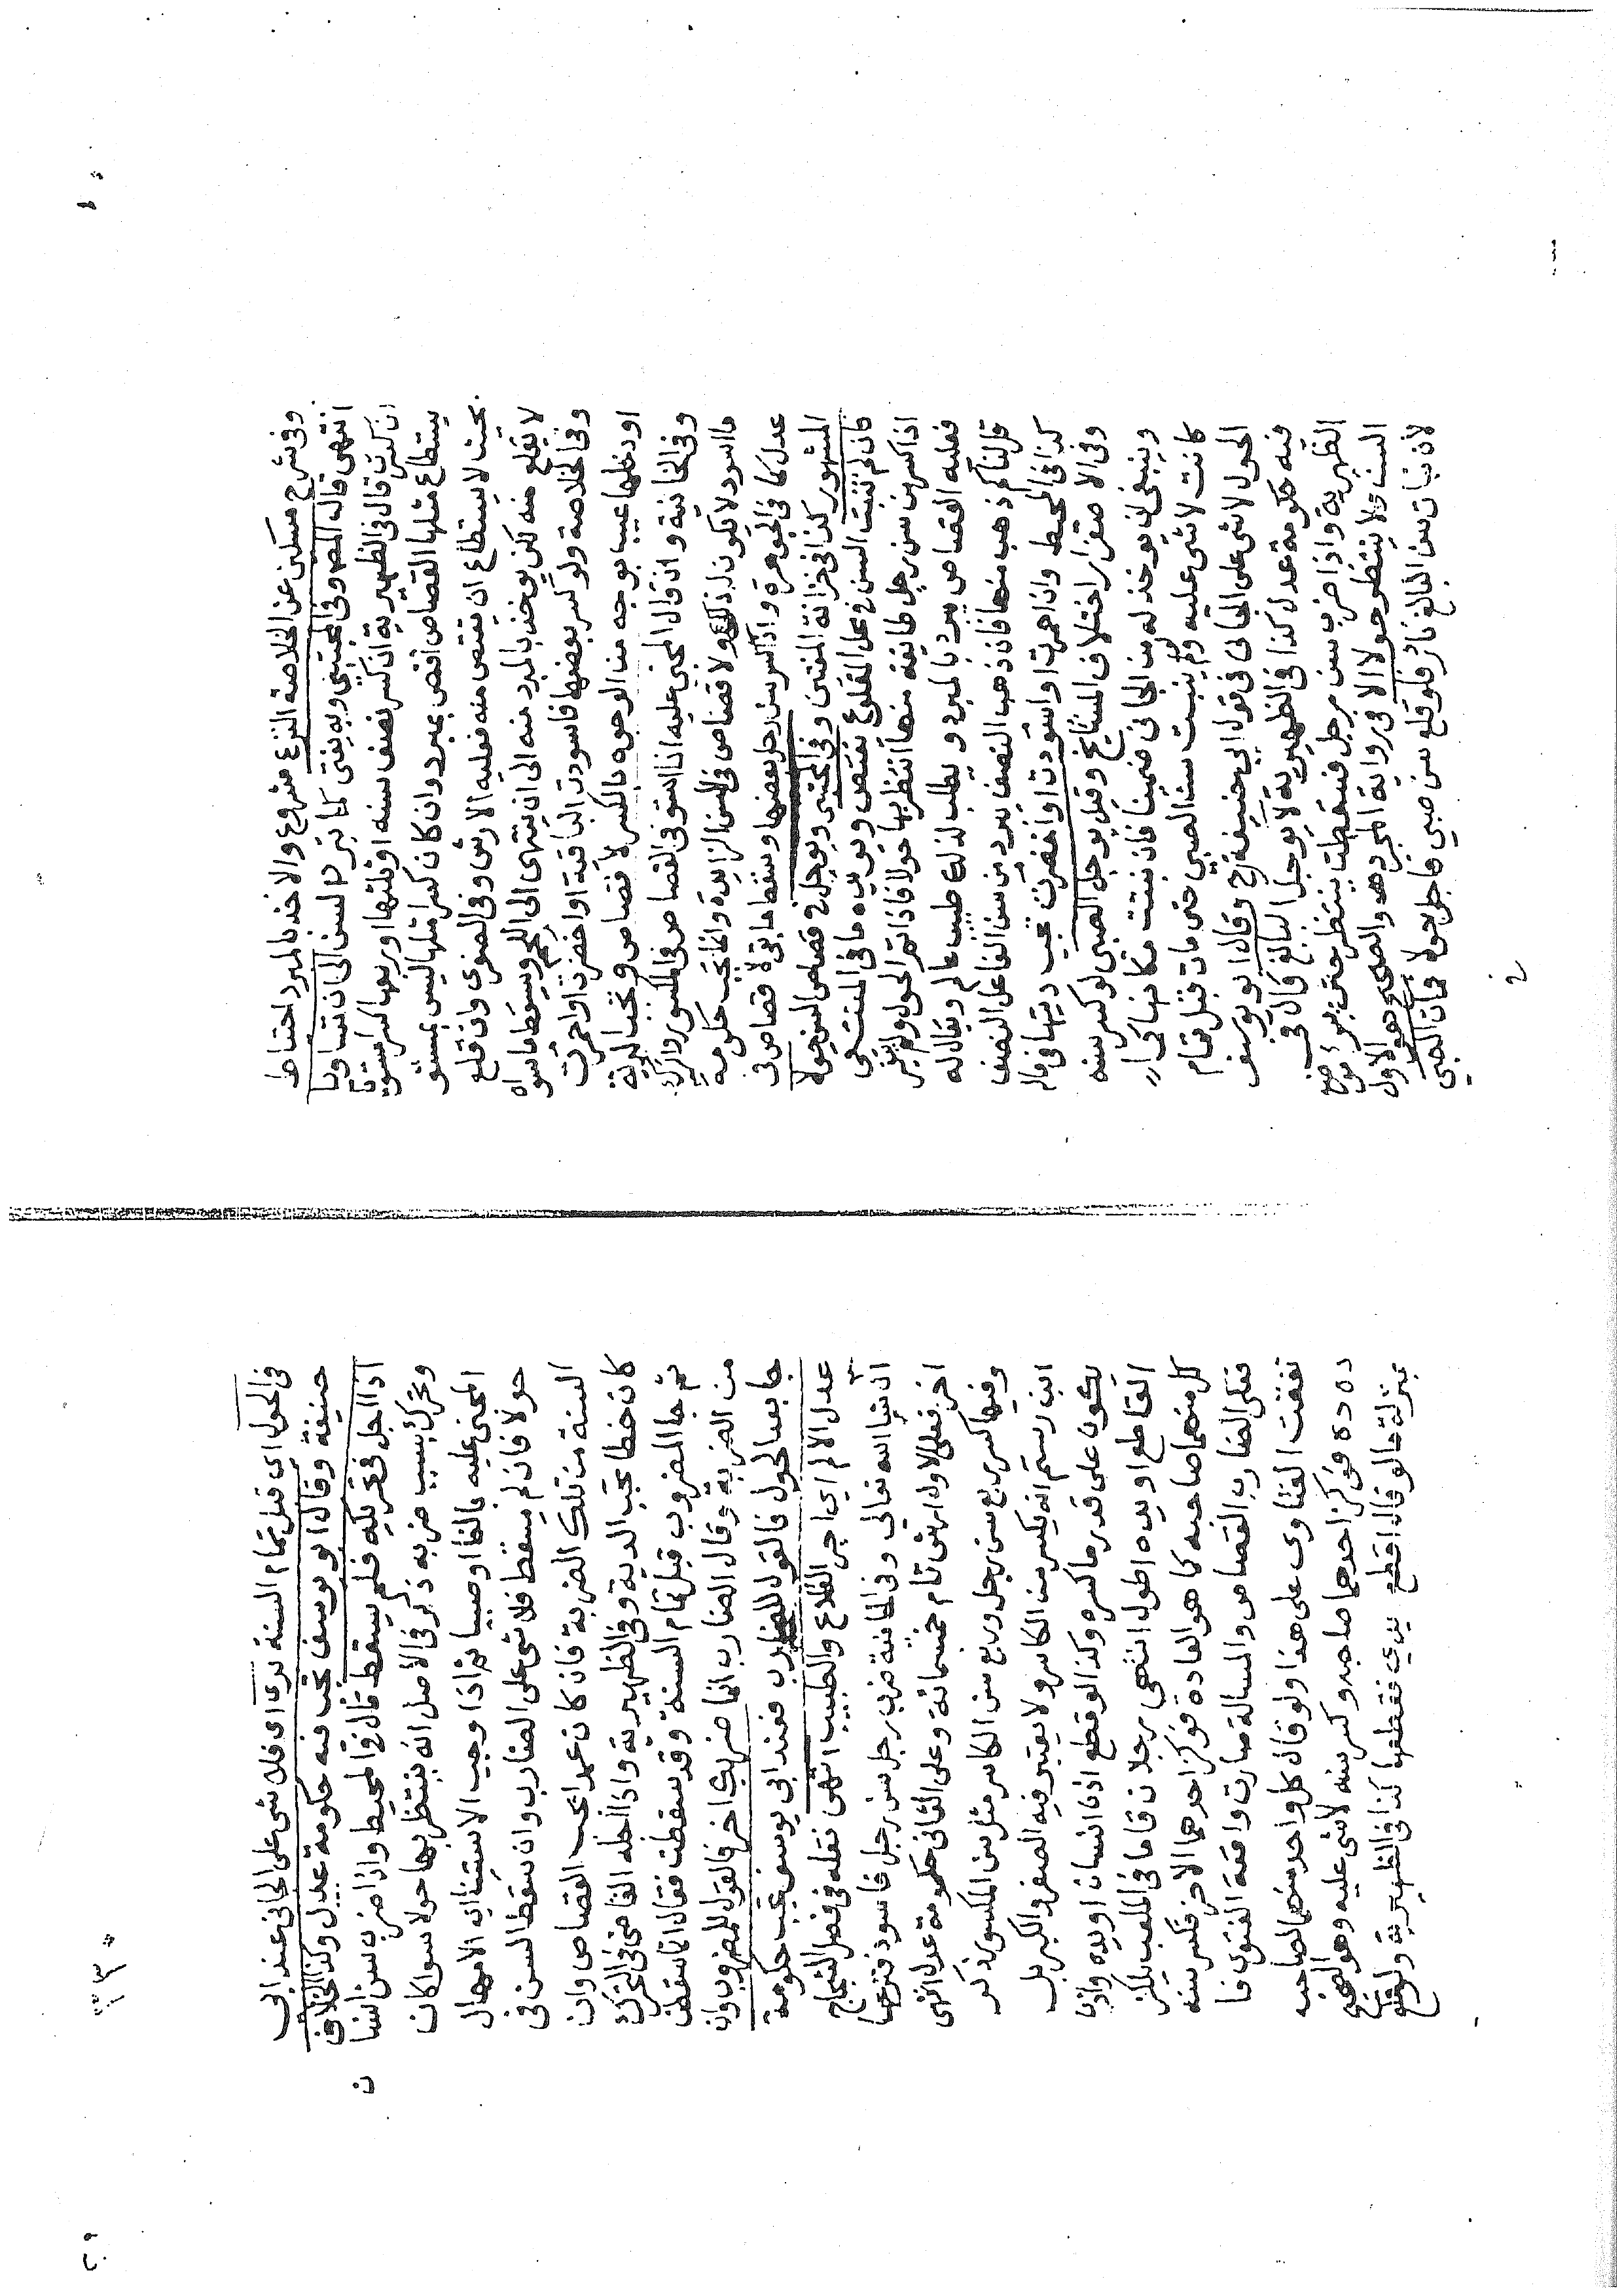 وفى شرح مسكين عن الخلاصة النزع مشروع والاخذ بالمبرد احتياط
انتهى قاله المصـ وفى المجتبى وبه يفتى كما تبرد السن الى ان تتساويا
ان كسرت قال فى الظهيرية ان كسر نصف سنه او ثلثها او ربعها كسرا مستويا
يستطاع مثلها القصاص اقتص بمبرد وان كان كسرا مثلها ليس بمستو
بحيث لا يستطاع ان يقتص منه فعليه الارش وفى الصغرى وان قلع
لا يقلع منه لكن يوخذ بالمبرد منه الى ان ينتهى الى اللحم ويسقط ما سواه
وفى الخلاصة ولو كسر بعضها فاسودت الباقية او اخضرت او احمرت
او دخلها عيب بوجه من الوجوه بالكسر لا قصاص وتجب الدية
وفى الخانية وان قال المجنى عليه انا استوفى القصاص فى المكسور واترك
ما اسود لا يكون له ذلك ولا قصاص فى السن الزايدة وانما تجب حكومة
عدل كما فى الجوهرة واذا كسر سن رجل بعضها وسقط ما بقى لا قصاص فى
المشهور كذا فى خزانة المفتين وفى المجتبى ويوجل فى قصاص السن حولا
فان لم تنبت السن فى محل المقلوع يقتص ويويده ما فى المنتقى
اذا كسر من سن رجل طائفة منها انتظر بها حولا فاذا تم الحول ولم يتغير
فعليه القصاص يبرد بالمبرد ويطلب لذلك طبيب عالم ويقال له
قل لنا كم ذهب منها فان ذهب النصف يبرد من سن الفاعل النصف
كذا فى المحيط واذا احمرت او اسودت او اخضرت تجب ديتها فى ماله
وفى الاصفرار اختلاف المشايخ وقيل يوجل الصبى لو كسر سنه
وينبغى ان يوخذ له من الجانى ضمينا فان نبتت مكانها كما
كانت لا شى عليه ولم ينبت سن الصبى حتى مات قبل تمام
الحول لا شى على الجانى فى قول ابى حنيفة رح وقال ابو يوسف
فيه حكومة عدل كذا فى الظهيرية لا يوجل البالغ قال فى
الظهيرية واذا ضرب سن رجل فسقطت ينتظر حتى يبرا موضع
السن ولا ينتظر حولا الا فى رواية المجرد هو والصحيح هو الاول
لان نبات سن البالغ نادر فلو قلع سن صبى فاجل حولا فمات الصبى
فى الحول اى قبل تمام السنة برى اى فلا شى على الجانى عند ابى
حنيفة وقال ابو يوسف تجب فيه حكومة عدل وكذا الخلاف
اذا اجل فى تحريكه فلم يسقط قال فى المحيط واذا ضرب سن انسان
وتحرك بسبب ضربه ذكر فى الاصل انه ينتظر بها حولا سوا كان
المجنى عليه بالغا او صبيا ثم اذا وجب الاستينا اى الامهال
حولا فان لم يسقط فلا شى على الضارب وان سقط السن فى
السنة من تلك الضربة فان كان عمدا يجب القصاص وان
كان خطا تجب الدية وفى الظهيرية واذا اجله القاضى فى التحرك
ثم جا المضروب قبل تمام السنة وقد سقطت فقال انما سقطت
من الضربة وقال الضارب انما ضربك اخر فالقول للمضروب وان
جا بعد الحول فالقول للضارب فعند ابى يوسف تجب حكومة
عدل الالم اى اجر القلاع والطبيب انتهى نقله فى فصل الشجاج
ان شا الله تعالى وفى الخانية ضرب رجل سن رجل فاسود فنزعها
اخر فعلى الاول ارش تام خمسمائة وعلى الثانى حكومة عدل انتهى
وفيها كسر ربع سن رجل وربع سن الكاسر مثل سن المكسور ذكر
ابن رستم انه يكسر من الكاسر ولا يعتبر فيه الصغر والكبر بل
يكون على قدر ما كسره وكذا لو قطع اذن انسان او يده واذن
القاطع او يده اطول انتهى رجلان قاما فى الملعب ليلكز
كل منهما صاحبه كما هو العادة فوكز احدهما الاخر فكسر سنه
فعلى الضارب القصاص والمسالة صارت واقعة الفتوى فا
تفقت الفتاوى على هذا ولو قال كل واحد منهما لصاحبه
ده ده فوكز احدهما صاحبه وكسر سنه لا شى عليه وهو الصحيح
بمنزلة ما لو قال اقطع يدى فقطعها كذا فى الظهيرية ولو قلع